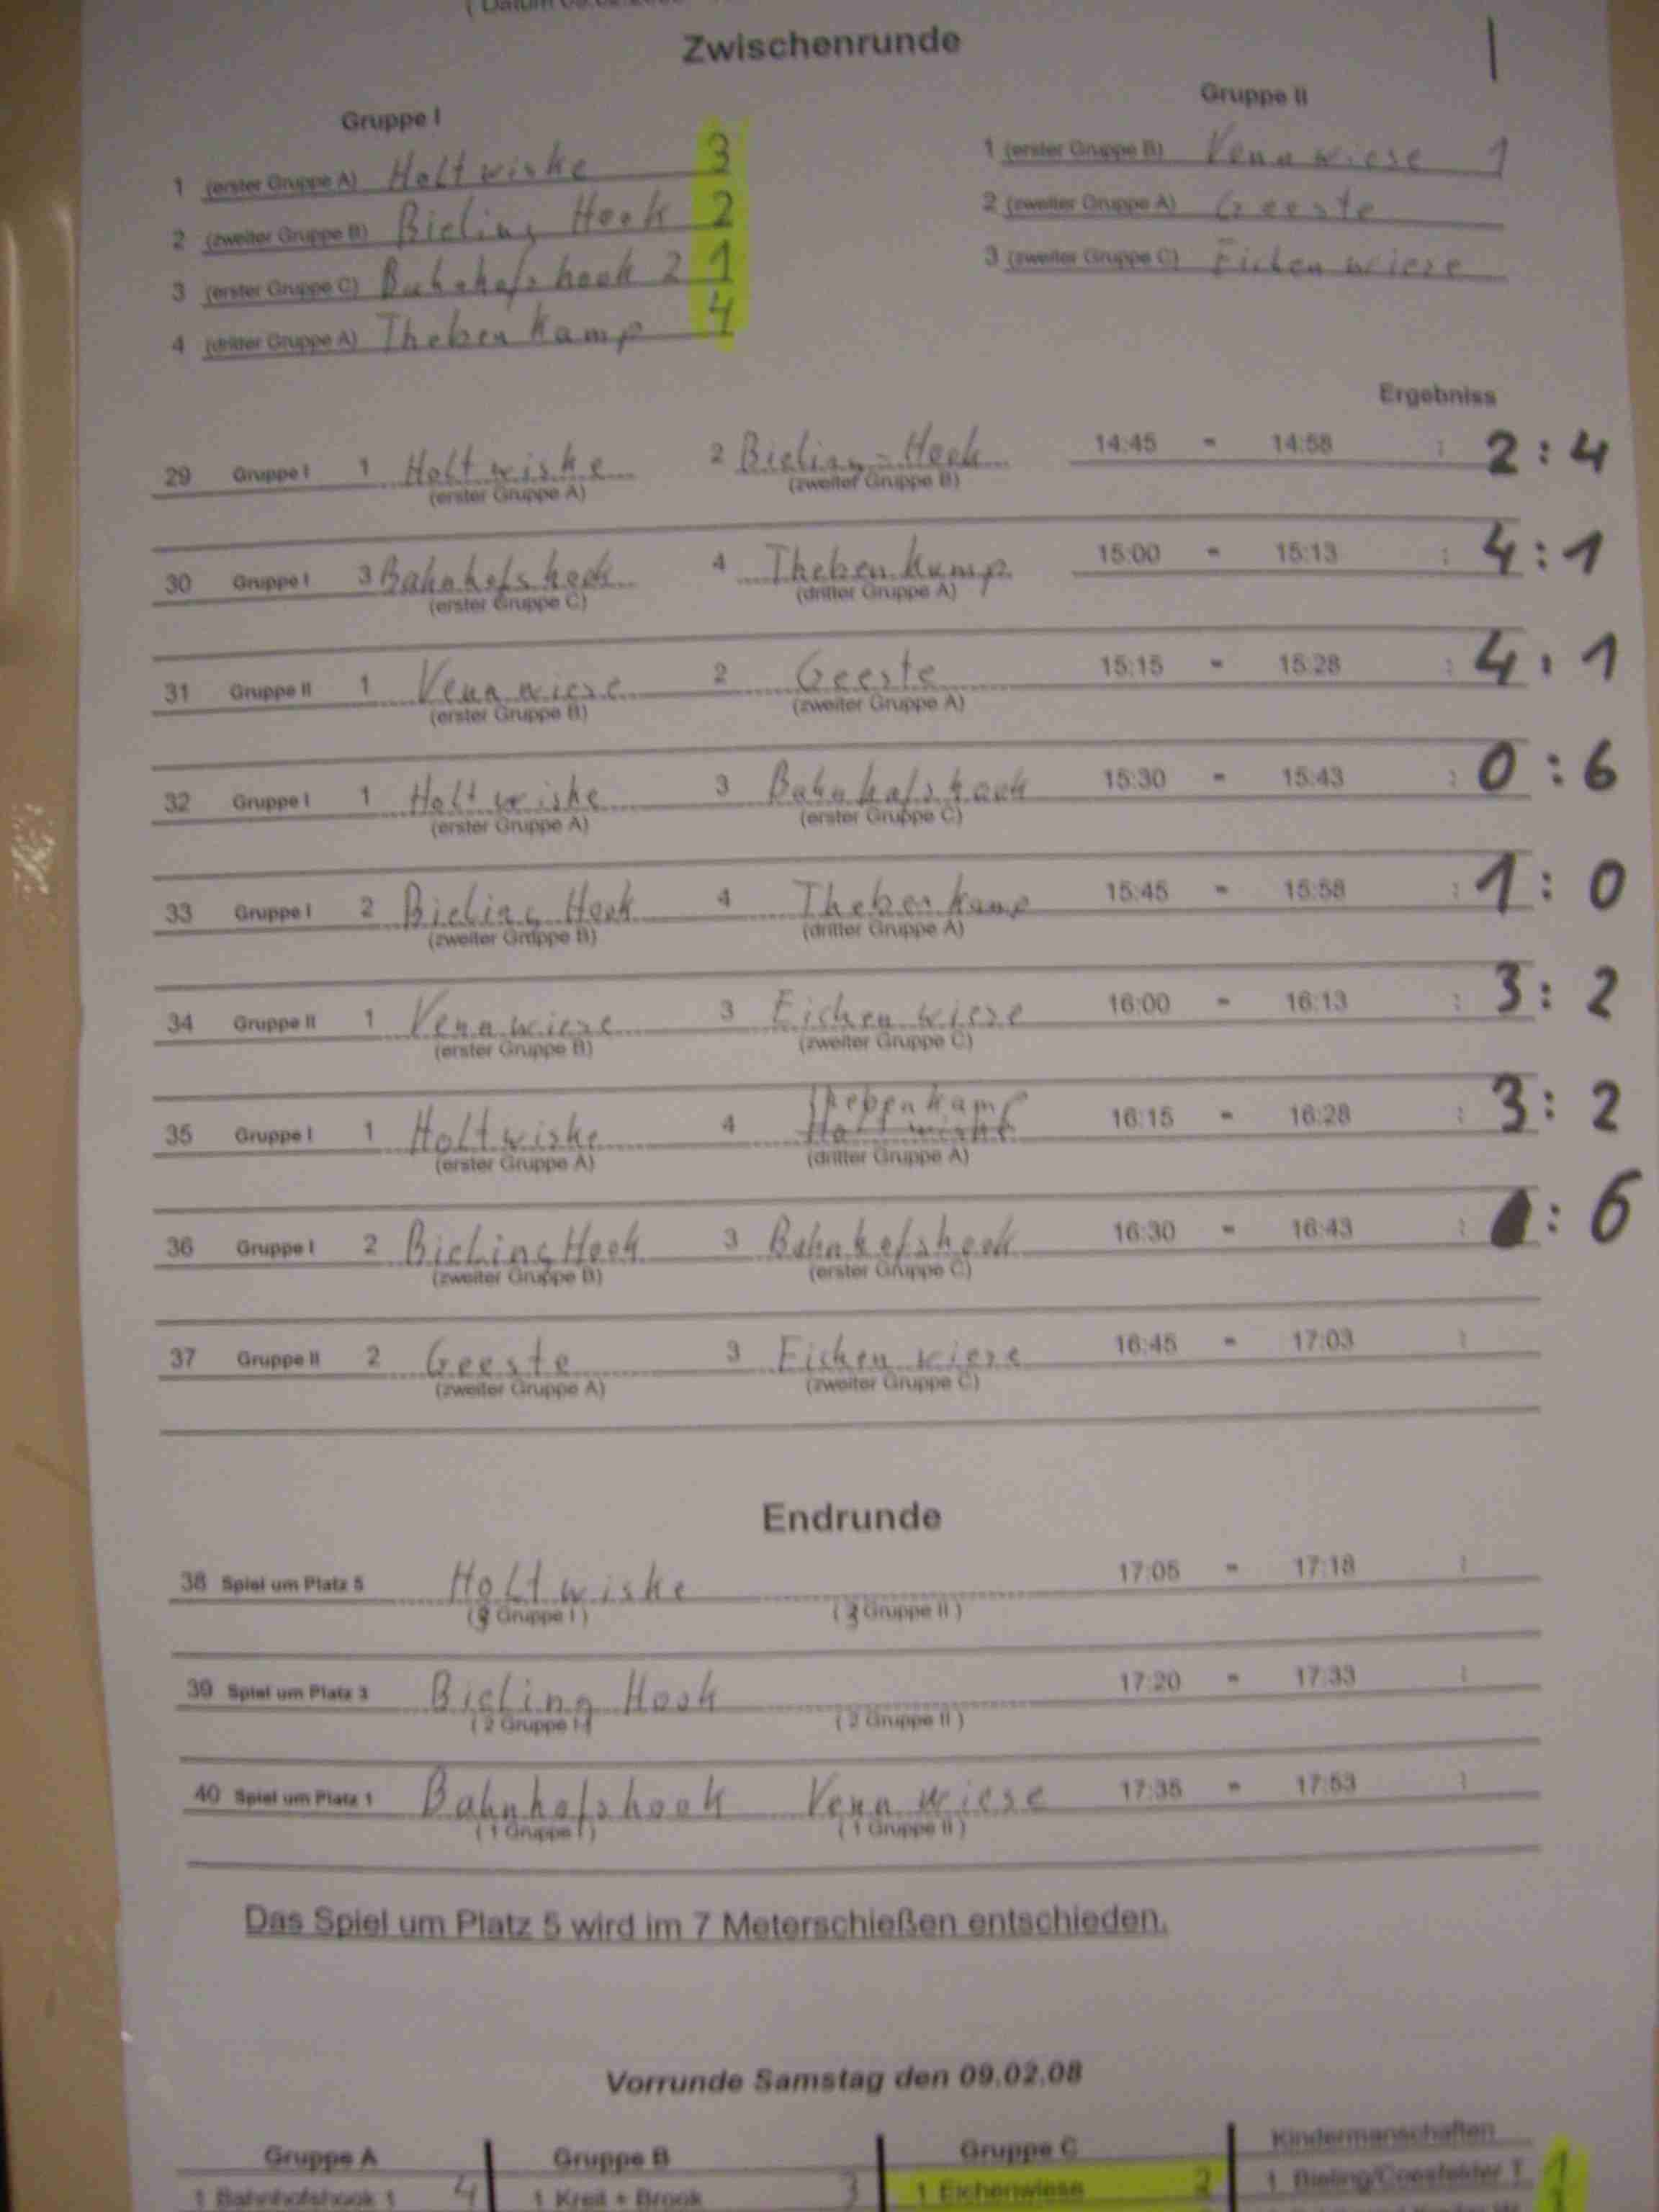 Zwischenrunde
Gruppe I
Gruppe II
1 (erster Gruppe A) Holtwiske 3
1 (erster Gruppe B) Vennwiese 1
2 (zweiter Gruppe B) Bieling Hook 2
2 (zweiter Gruppe A) Geeste
3 (erster Gruppe C) Bahnhofshook 2 1
3 (zweiter Gruppe C) Eichenwiese
4 (dritter Gruppe A) Thebenkamp 4
Ergebniss
29 Gruppe I 1 Holtwiske 2 Bieling-Hook 14:45 - 14:58 : 2:4
(erster Gruppe A) (zweiter Gruppe B)
30 Gruppe I 3 Bahnhofshook 4 Thebenkamp 15:00 - 15:13 : 4:1
(erster Gruppe C) (dritter Gruppe A)
31 Gruppe II 1 Vennwiese 2 Geeste 15:15 - 15:28 : 4:1
(erster Gruppe B) (zweiter Gruppe A)
32 Gruppe I 1 Holtwiske 3 Bahnhofshook 15:30 - 15:43 : 0:6
(erster Gruppe A) (erster Gruppe C)
33 Gruppe I 2 Bieling Hook 4 Thebenkamp 15:45 - 15:58 : 1:0
(zweiter Gruppe B) (dritter Gruppe A)
34 Gruppe II 1 Vennwiese 3 Eichenwiese 16:00 - 16:13 : 3:2
(erster Gruppe B) (zweiter Gruppe C)
Thebenkamp
35 Gruppe I 1 Holtwiske 4 Holtwiske 16:15 - 16:28 : 3:2
(erster Gruppe A) (dritter Gruppe A)
36 Gruppe I 2 Bieling Hook 3 Bahnhofshook 16:30 - 16:43 : : 6
(zweiter Gruppe B) (erster Gruppe C)
37 Gruppe II 2 Geeste 3 Eichenwiese 16:45 - 17:03 :
(zweiter Gruppe A) (zweiter Gruppe C)
Endrunde
38 Spiel um Platz 5 Holtwiske 17:05 - 17:18 :
(3 Gruppe I) (3 Gruppe II)
39 Spiel um Platz 3 Bieling Hook 17:20 - 17:33 :
(2 Gruppe I) (2 Gruppe II)
40 Spiel um Platz 1 Bahnhofshook Vennwiese 17:35 - 17:53 :
(1 Gruppe I) (1 Gruppe II)
Das Spiel um Platz 5 wird im 7 Meterschießen entschieden.
Vorrunde Samstag den 09.02.08
Gruppe A Gruppe B Gruppe C Kindermanschaften
1 Bahnhofshook 1 4 1 Kreil + Brook 3 1 Eichenwiese 2 1 Bieling/Coesfelder T. 1